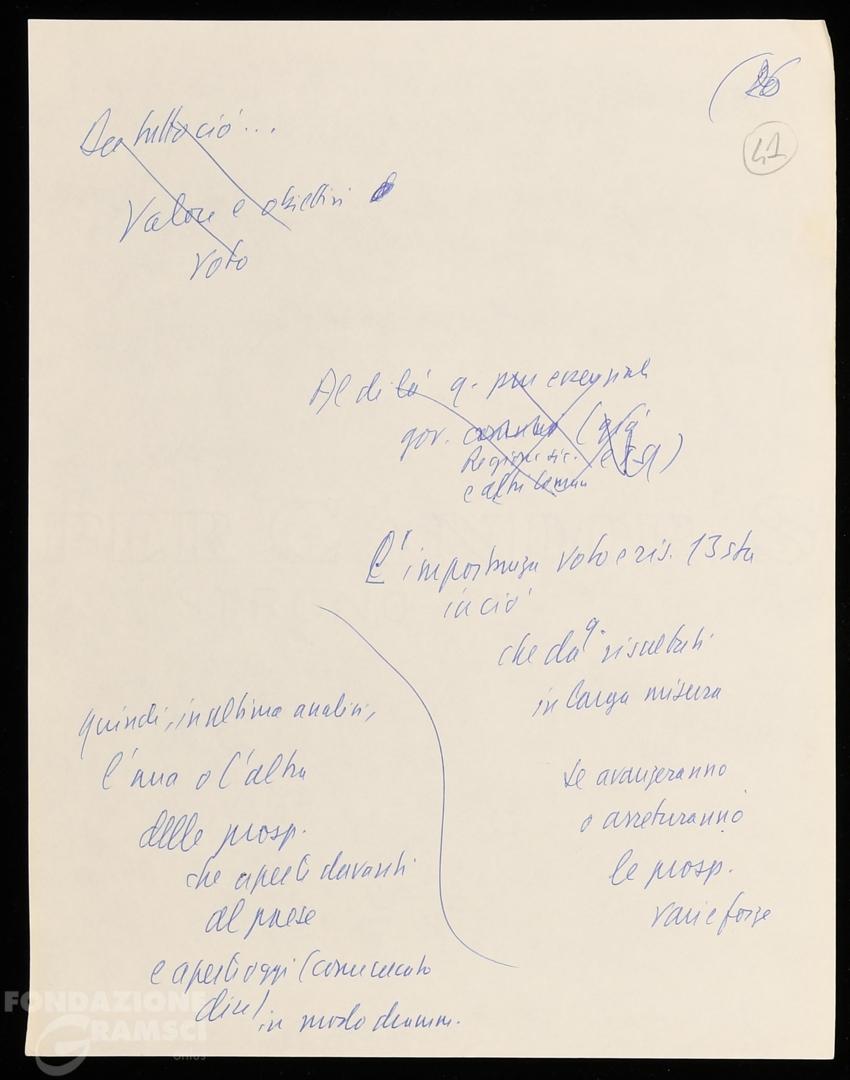 (26
41
Da tutto ciò...
Valore e obiettivi
voto
Al di là q. pur essenziale
gov. (già
Regione sic. e
e altri Comuni
L'importanza voto e ris. 13 sta
in ciò
che da q. risultati
in larga misura
se avanzeranno
o arretreranno
le prosp.
varie forze
quindi, in ultima analisi,
l'una o l'altra
delle prosp.
che aperte davanti
al paese
e aperte oggi (comunicato
dire) in modo dramm.
FONDAZIONE
GRAMSCI
onlus